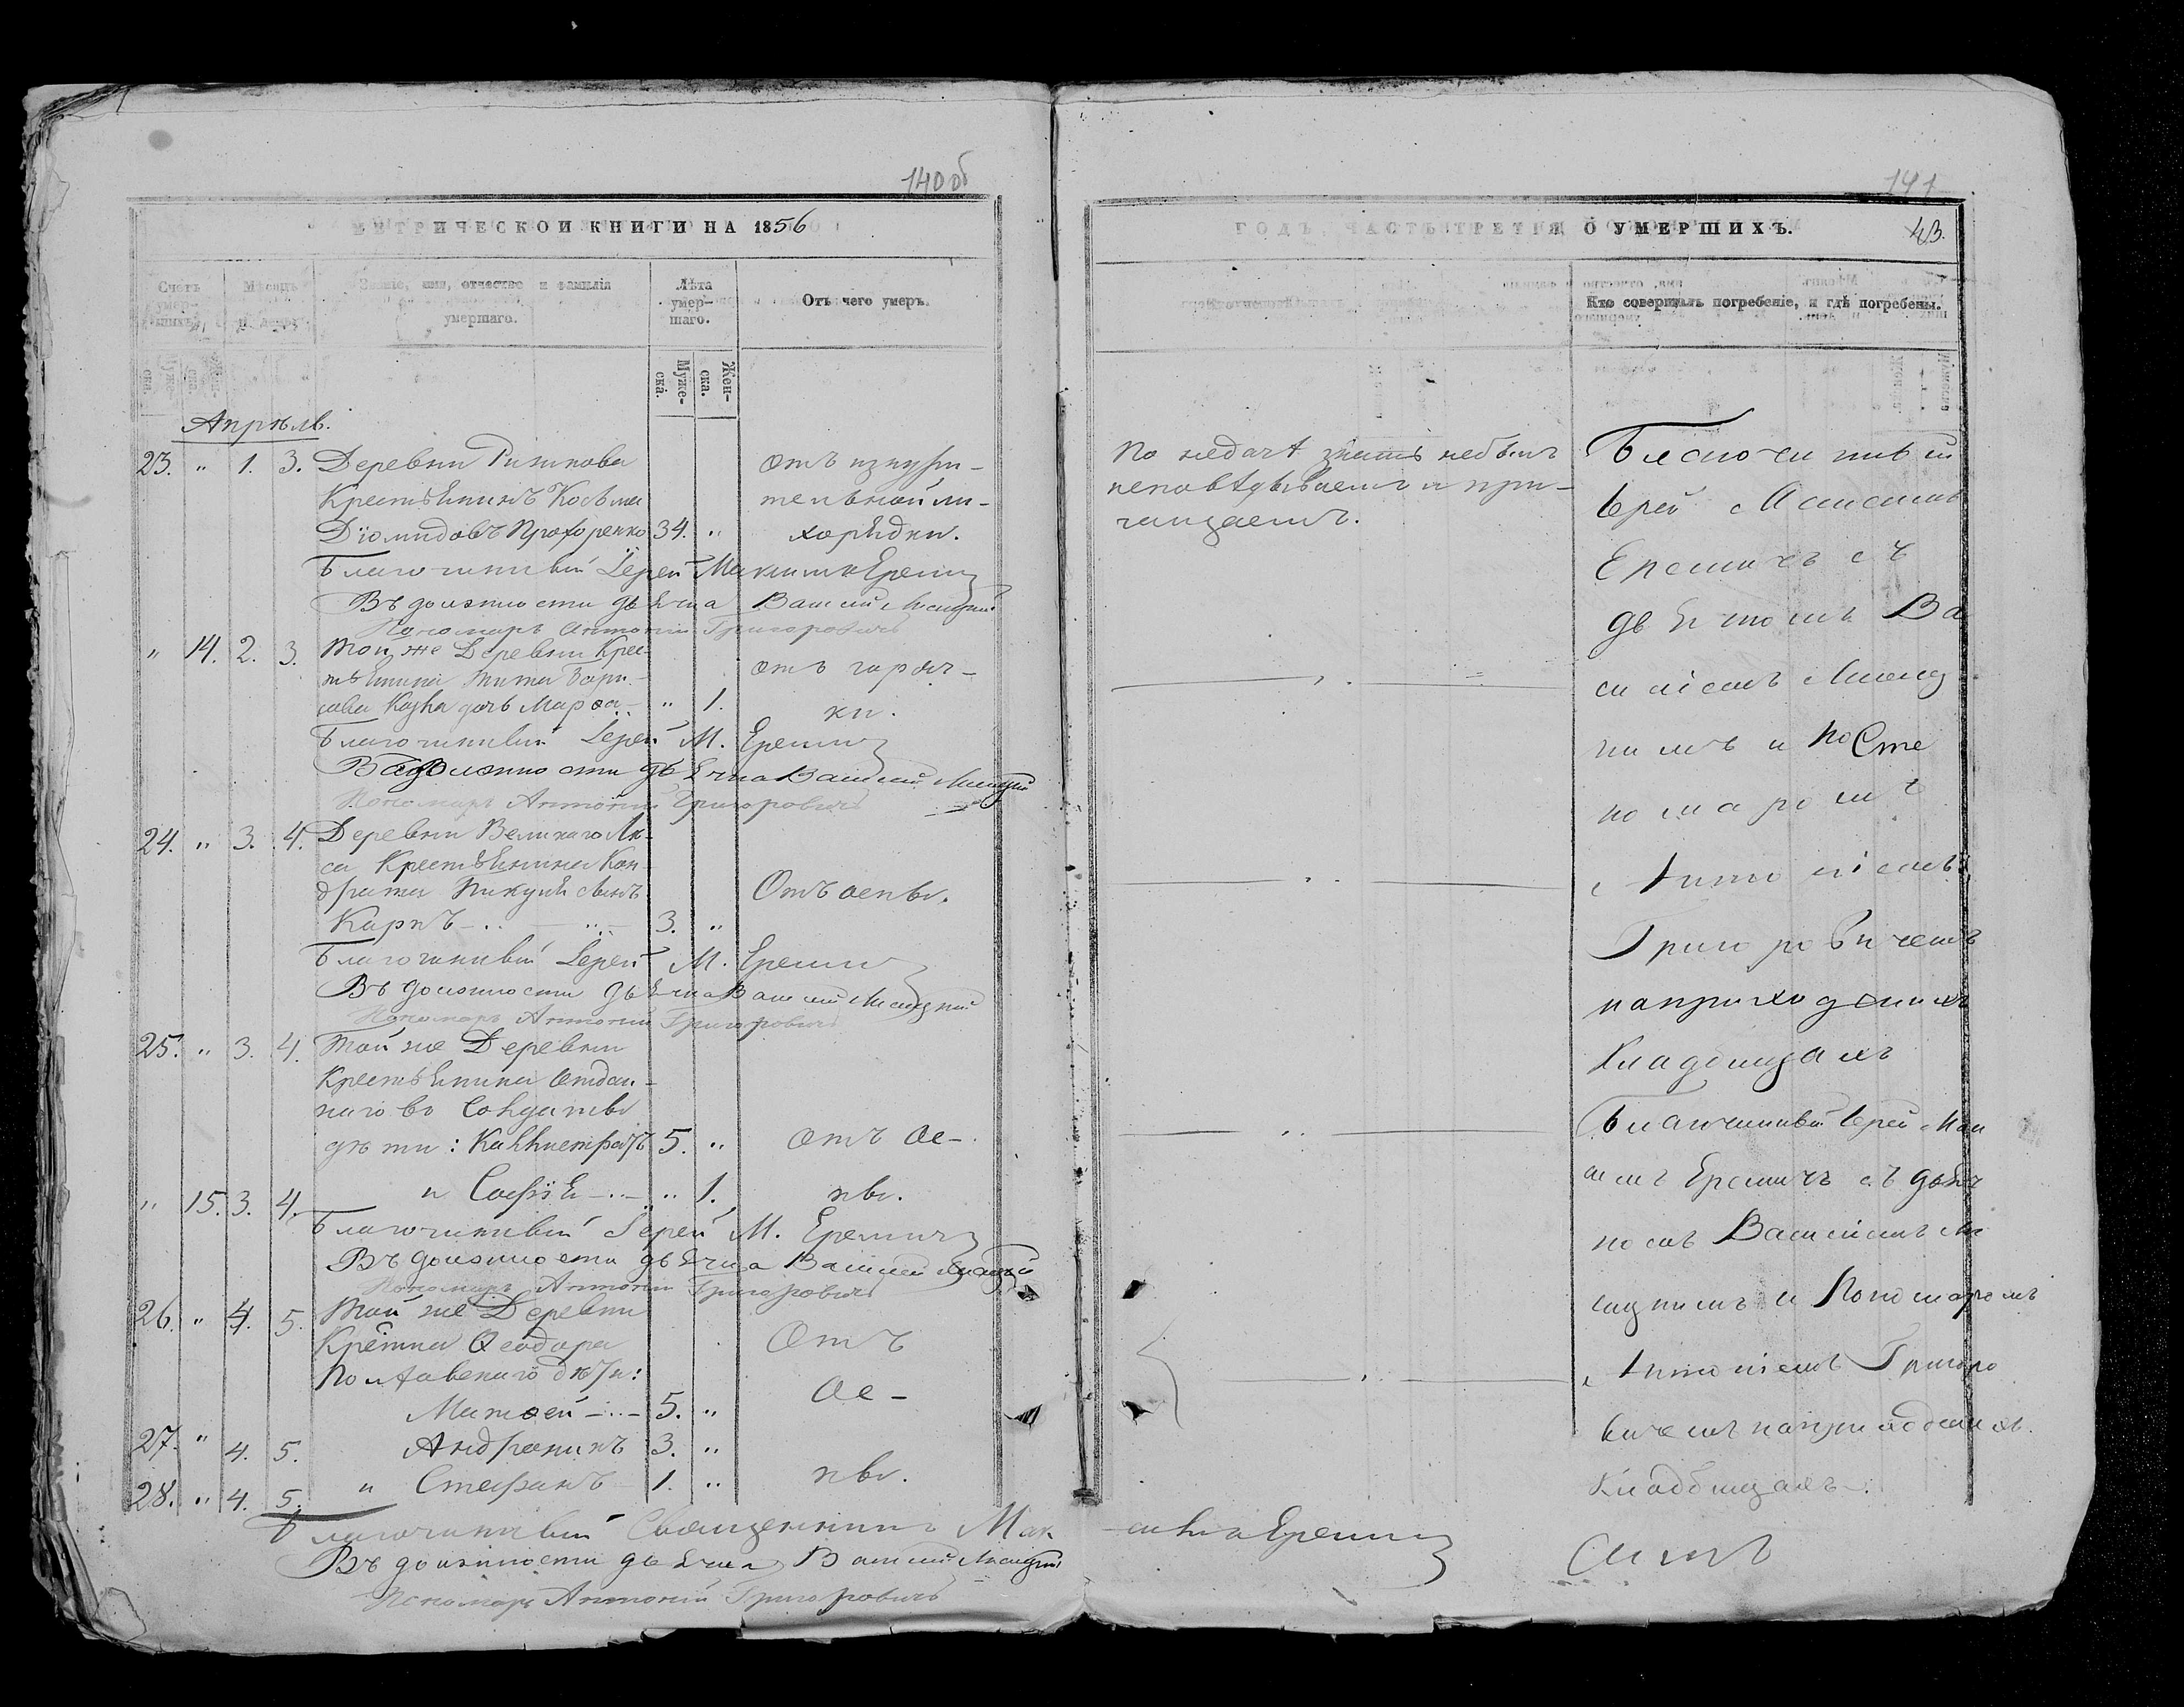 140 об
МЕТРИЧЕСКОЙ КНИГИ НА 1856
Счетъ умершихъ.
Мѣсяцъ и день.
Званіе, имя, отчество и фамилія умершаго.
Лѣта умершаго.
Отъ чего умеръ.
Мужеска.
Женска.
Апрѣль.
23. " 1. 3. Деревни
Крестьянинъ Косьма
Діомидовъ Прохоренко 34. "
отъ изнури-
тельной ли-
хорядки.
Благочинный Іерей Максимъ Еремичъ
Въ должности дьячка Василій Лисицкій
Пономарь Антоній Григоровичъ
" 14. 2. 3. Той же Деревни Крес-
тьянина Тита Бори-
сова дочь Марѳа " 1.
отъ горяч-
ки.
Благочинный Іерей М. Еремичъ
Въ должности дьячка Василій Лисицкій
Пономарь Антоній Григоровичъ
24. " 3. 4. Деревни Великаго Лѣ-
са Крестьянина Кон-
драта Пикуля сынъ
Карпъ 3. "
Отъ оспы.
Благочинный Іерей М. Еремичъ
Въ должности дьячка Василій Лисицкій
Пономарь Антоній Григоровичъ
25. " 3. 4. Той же Деревни
Крестьянина отдан-
наго въ Солдаты
дѣти: Каллистратъ 5. "
отъ ос-
" 15. 3. 4. и Софія " 1.
пы.
Благочинный Іерей М. Еремичъ
Въ должности дьячка Василій Лисицкій
Пономарь Антоній Григоровичъ
26. " 4. 5. Той же Деревни
Крестьянина Ѳеодора
дѣти:
Отъ
Матѳей 5. "
ос-
27. " 4. 5. Андроникъ 3. "
28. " 4. 5. и Стефанъ 1. "
пы.
Благочинный Священникъ Мак
Въ должности дьячка Василій Лисицкій
Пономарь Антоній Григоровичъ
141
ГОДЪ, ЧАСТЬ ТРЕТІЯ, О УМЕРШИХЪ.
43.
Кто совершалъ погребеніе, и гдѣ погребены.
По недачѣ знать небылъ
исповѣдываемъ и при-
чащаемъ.
Благочинный
Іерей Максимъ
Еремичъ съ
дьячкомъ Ва
силіемъ Лисиц
кимъ и
номаромъ
Антоніемъ
Григоровичемъ
на приходскихъ
Кладбищахъ
Благочинный Іерей Мак
симъ Еремичъ съ дьяч
комъ Василіемъ Ли
сицкимъ и Пономаромъ
Антоніемъ Григоро
вичемъ на приходскихъ
Кладбищахъ.
симъ Еремичъ